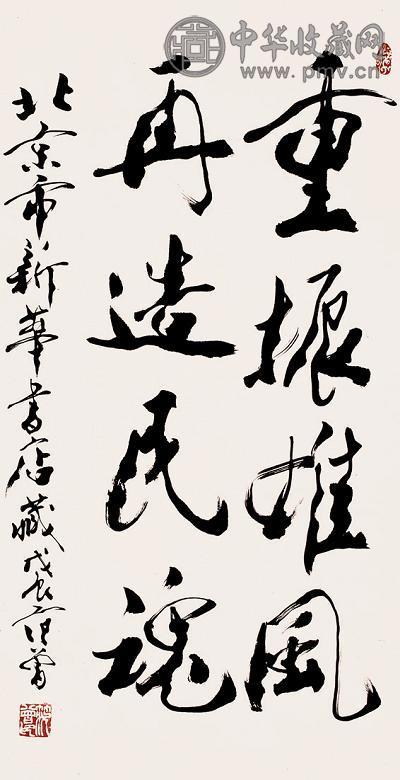 中华收藏网
www.pmv.cn
重振雄風
再造民魂
北京市新華書店藏戊辰范曾